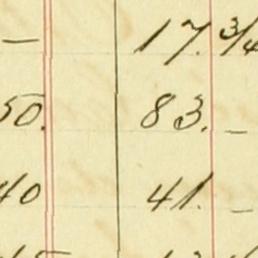 — 17. 3/4
50. 83. —
40 41. —